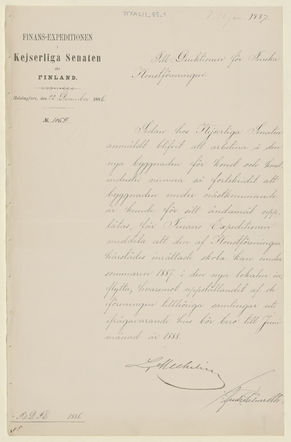 1887.
FINANS-EXPEDITIONEN
i
Kejserliga Senaten
för
FINLAND.
Helsingfors, den 22 December 1886.
№
Till Direktionen för Finska
Konstföreningen.
Sedan hos Kejserliga Senaten
anmäldt blifvit att arbetena å den
nya byggnaden för konst och konst
industri numera så fortskridit att
byggnaden under nästkommande
år kunde för sitt ändamål upp
låtas, får Finans Expeditionen
meddela att den af Konstföreningen
härstädes inrättade skola kan under
sommaren 1887 i den nya lokalen in
flytta, hvaremot uppställandet af de
föreningen tillhöriga samlingar uti
ifrågavarande hus bör bero till Juni
månad år 1888.
L. Mechelin
1886.